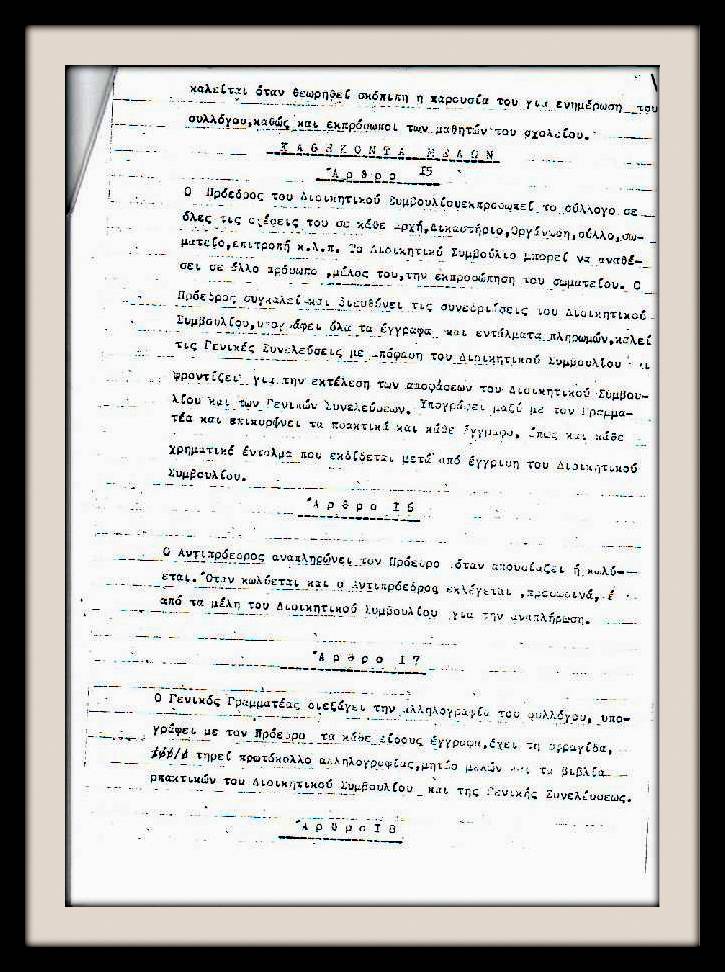 καλείται όταν θεωρηθεί σκόπιμη η παρουσία του για ενημέρωση του
συλλόγου,καθώς και εκπρόσωποι των μαθητών του σχολείου.
ΚΑΘΗΚΟΝΤΑ ΜΕΛΩΝ
Άρθρο 15
Ο Πρόεδρος του Διοικητικού Συμβουλίουεκπροσωπεί το σύλλογο σε
όλες τις σχέσεις του σε κάθε αρχή,Δικαστήριο,Οργάνωση,σύλλο,σω-
ματείο,επιτροπή κ.λ.π. Το Διοικητικό Συμβούλιο μπορεί να αναθέ-
σει σε άλλο πρόσωπο ,μέλος του,την εκπροσώπηση του σωματείου. Ο
Πρόεδρος συγκαλεί και διευθύνει τις συνεδριάσεις του Διοικητικού
Συμβουλίου,υπογράφει όλα τα έγγραφα και εντάλματα πληρωμών,καλεί
τις Γενικές Συνελεύσεις με απόφαση του Διοικητικού Συμβουλίου
φροντίζει για την εκτέλεση των αποφάσεων του Διοικητικού Συμβου-
λίου και των Γενικών Συνελεύσεων. Υπογράφει μαζύ με τον Γραμμα-
τέα και επικυρώνει τα πρακτικά και κάθε έγγραφο, όπως και κάθε
χρηματικό ένταλμα που εκδίδεται μετά από έγκριση του Διοικητικού
Συμβουλίου.
Άρθρο 16
Ο Αντιπρόεδρος αναπληρώνει τον Πρόεδρο όταν απουσιάζει ή κωλύ-
εται. Όταν κωλύεται και ο Αντιπρόεδρος εκλέγεται ,προσωρινά,
από τα μέλη του Διοικητικού Συμβουλίου για την αναπλήρωση.
Άρθρο 17
Ο Γενικός Γραμματέας διεξάγει την αλληλογραφία του συλλόγου, υπο-
γράφει με τον Πρόεδρο τα κάθε είδους έγγραφα,έχει τη σφραγίδα,
τηρεί πρωτόκολλο αλληλογραφίας,μητώο μελών και τα βιβλία
πρακτικών του Διοικητικού Συμβουλίου και της Γενικής Συνελεύσεως.
Άρθρο 18